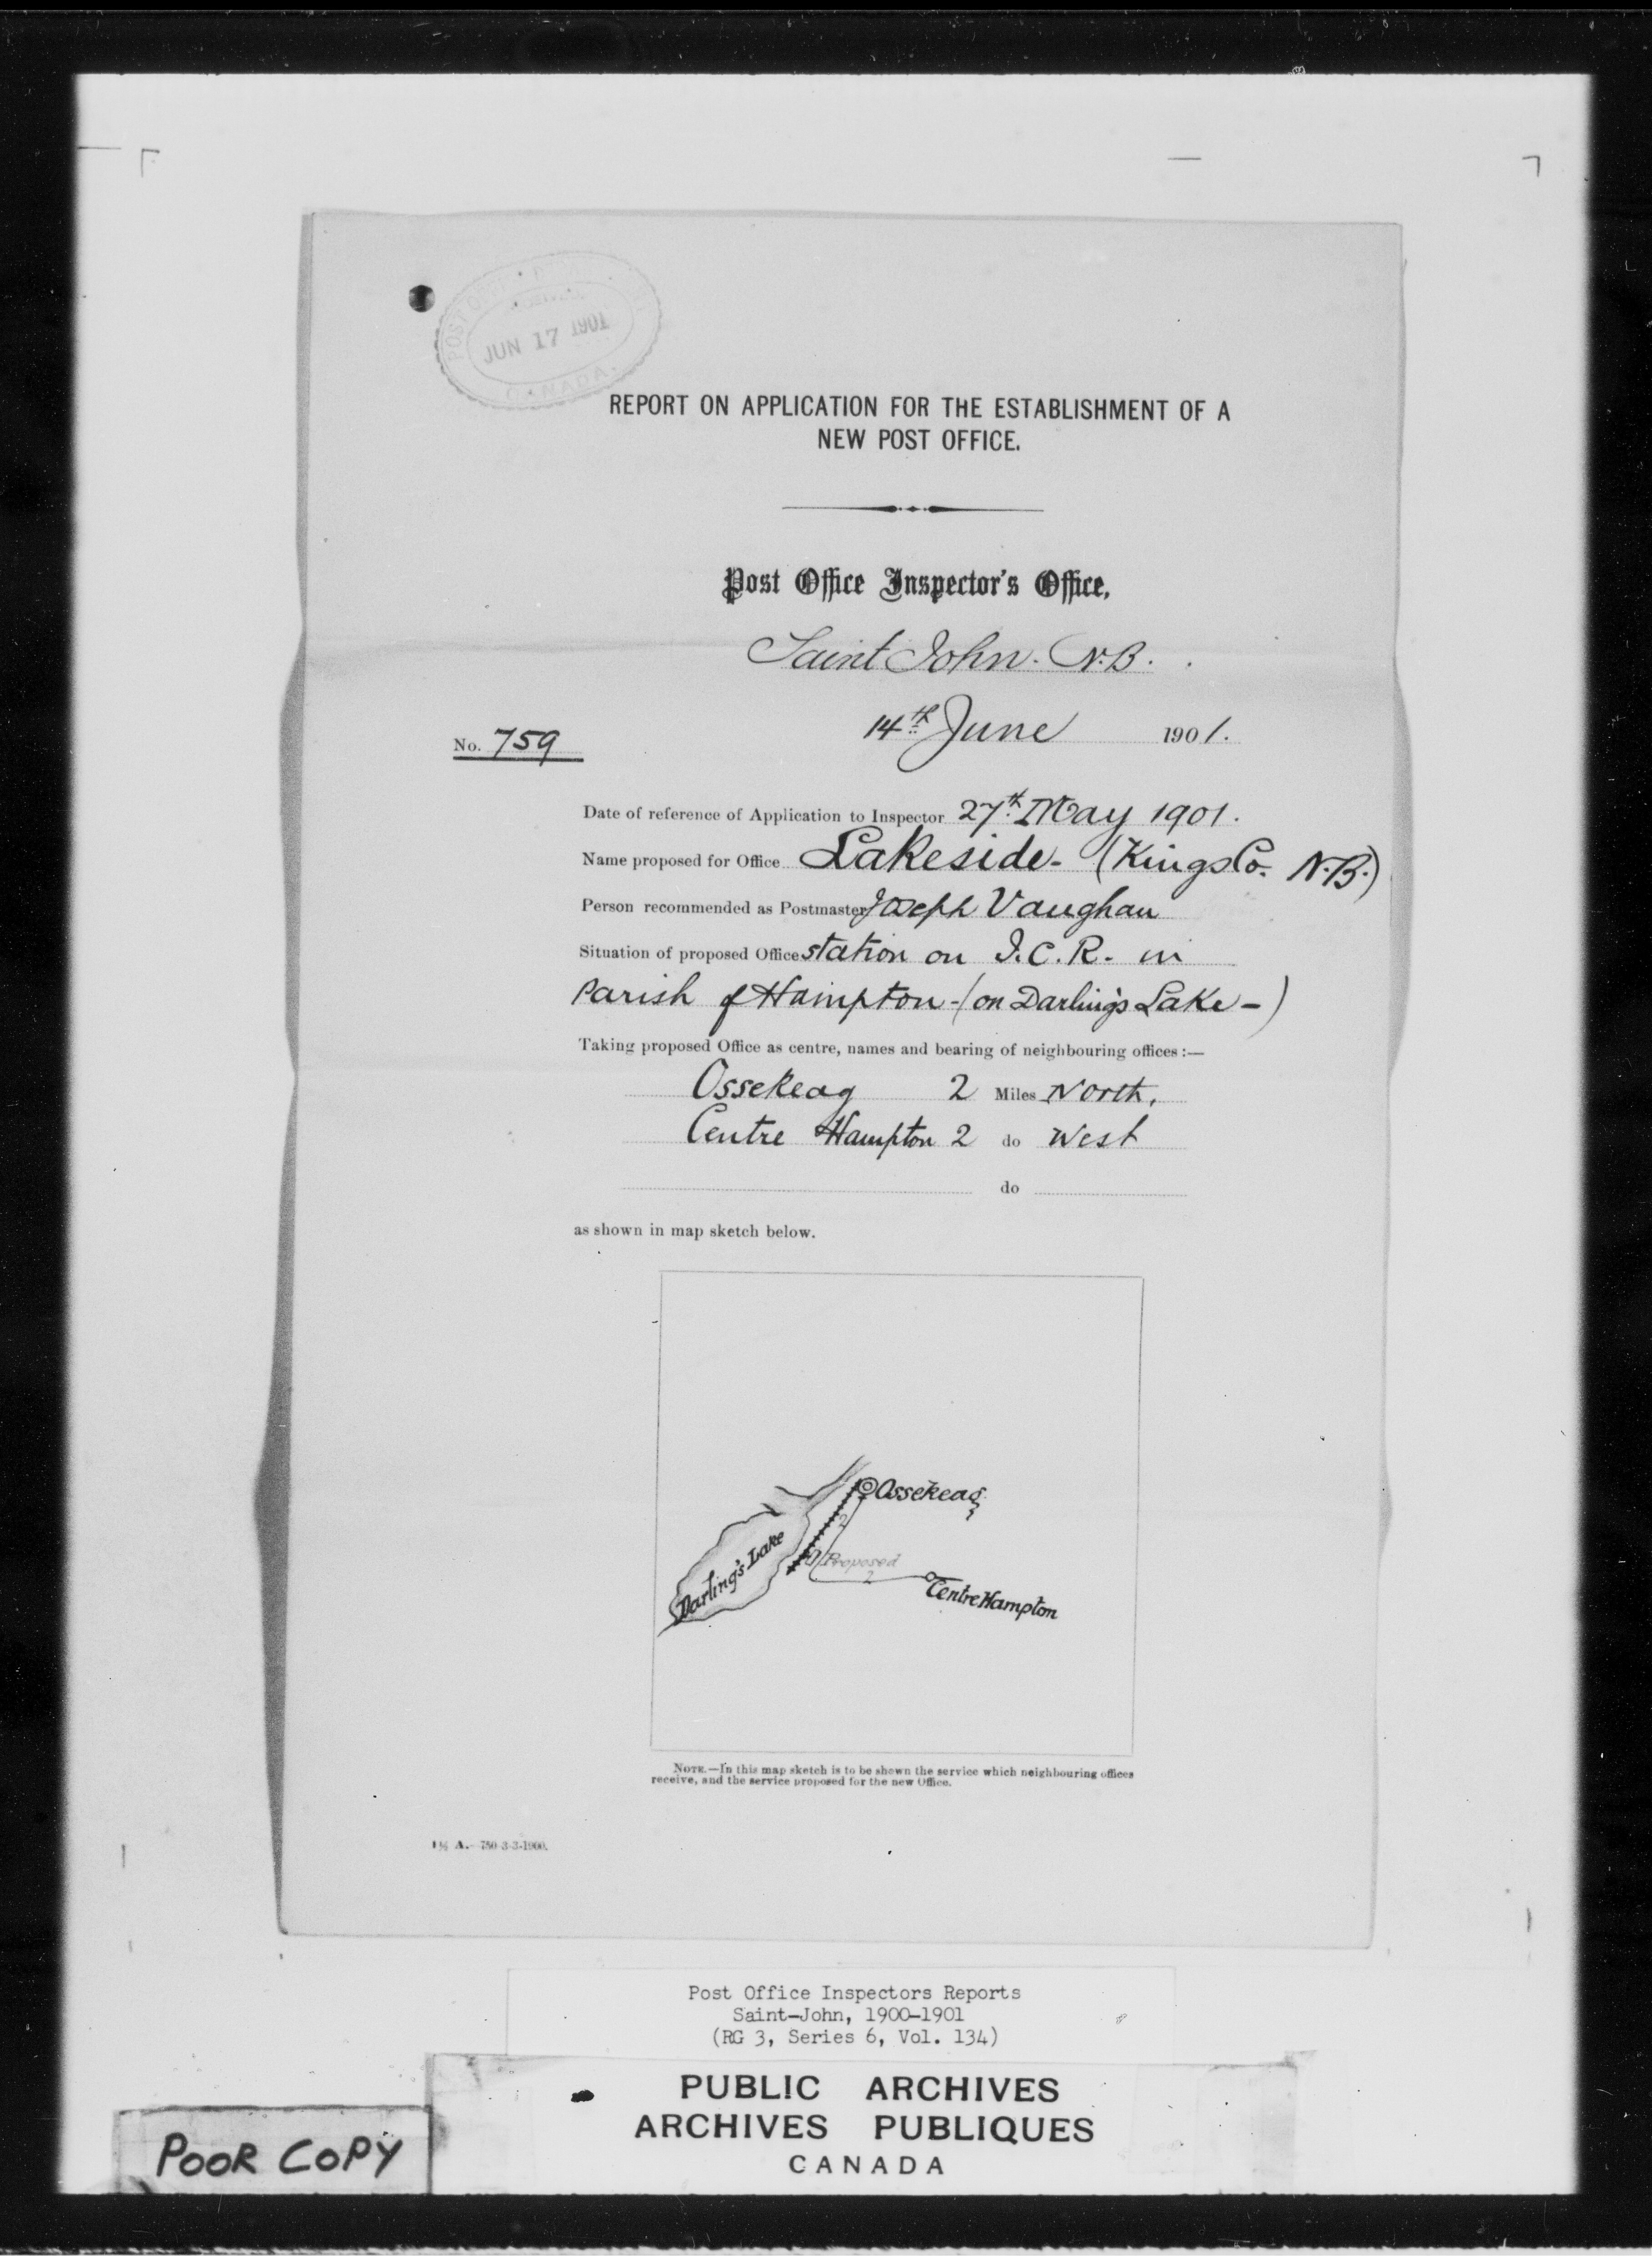 POST OFFICE
JUN 17 1901
CANADA.
REPORT ON APPLICATION FOR THE ESTABLISHMENT OF A
NEW POST OFFICE.
Post Office Inspector's Office,
Saint John. N.B.
14th June 1901.
No. 759
Date of reference of Application to Inspector 27th May 1901.
Name proposed for Office Lakeside - (Kings Co. N.B.)
Person recommended as Postmaster Joseph Vaughan
Situation of proposed Office station on I.C.R. in
Parish of Hampton - (on Darling's Lake -)
Taking proposed Office as centre, names and bearing of neighbouring offices :—
Ossekeag 2 Miles North,
Centre Hampton 2 do West
do
as shown in map sketch below.
Ossekeag
2
Darling's Lake
Proposed
2
Centre Hampton
NOTE.—In this map sketch is to be shown the service which neighbouring offices
receive, and the service proposed for the new Office.
A.—750-3-3-1900.
Post Office Inspectors Reports
Saint-John, 1900-1901
(RG 3, Series 6, Vol. 134)
PUBLIC ARCHIVES
ARCHIVES PUBLIQUES
CANADA
POOR COPY